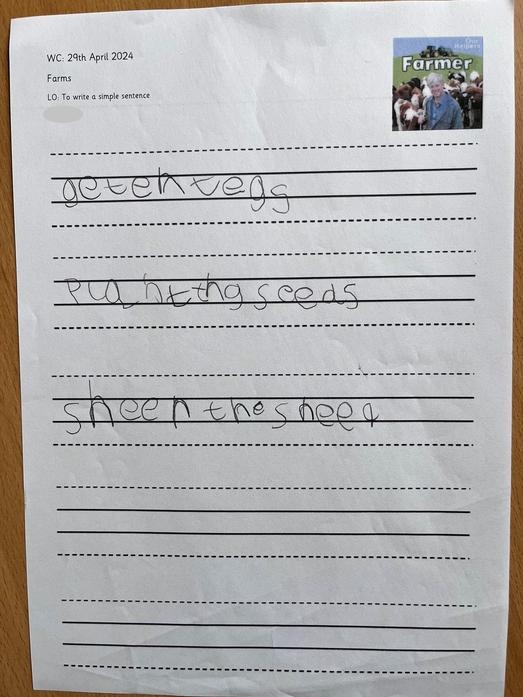 WC: 29th April 2024
Farms
LO: To write a simple sentence
Our Helpers
Farmer
geteh tegg
planttng seeds
sheen the sheep